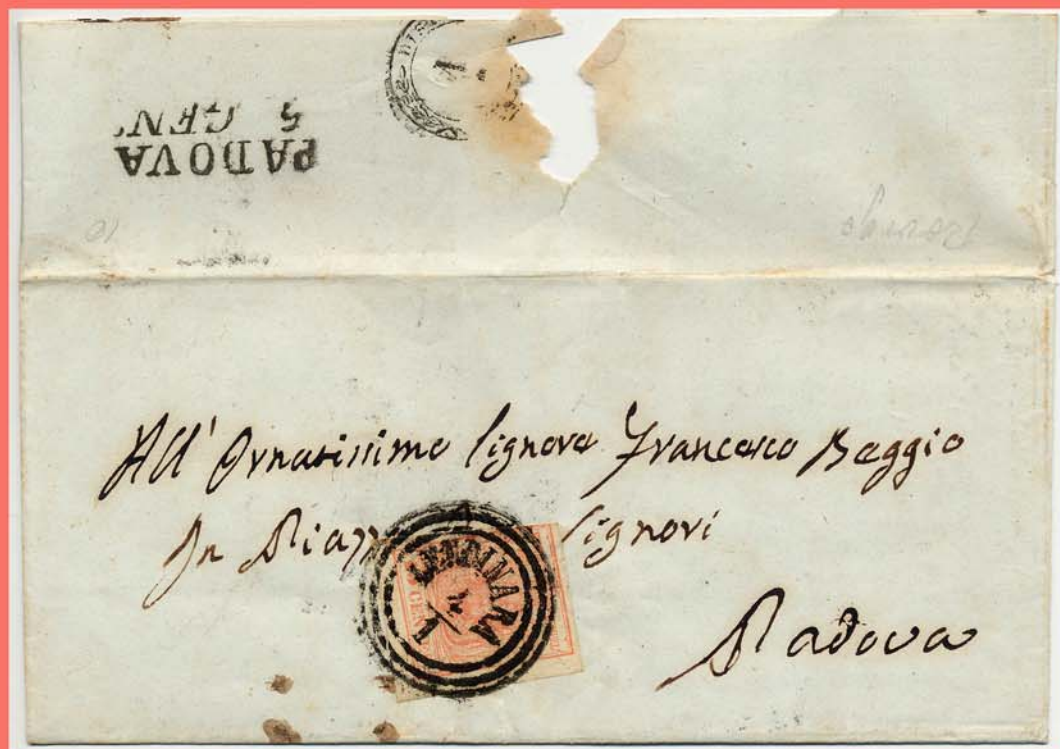 DIS
PADOVA
5
GEN.
All' Ornatissimo Signore Francesco Beggio
In Piazz Signori
Padova
LENDINARA
CEN